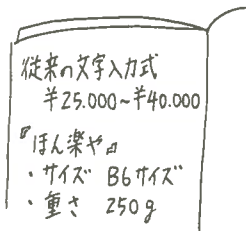 従来の文字入力式
¥25.000〜¥40.000
『ほん楽や』
・サイズ B6サイズ
・重さ 250g